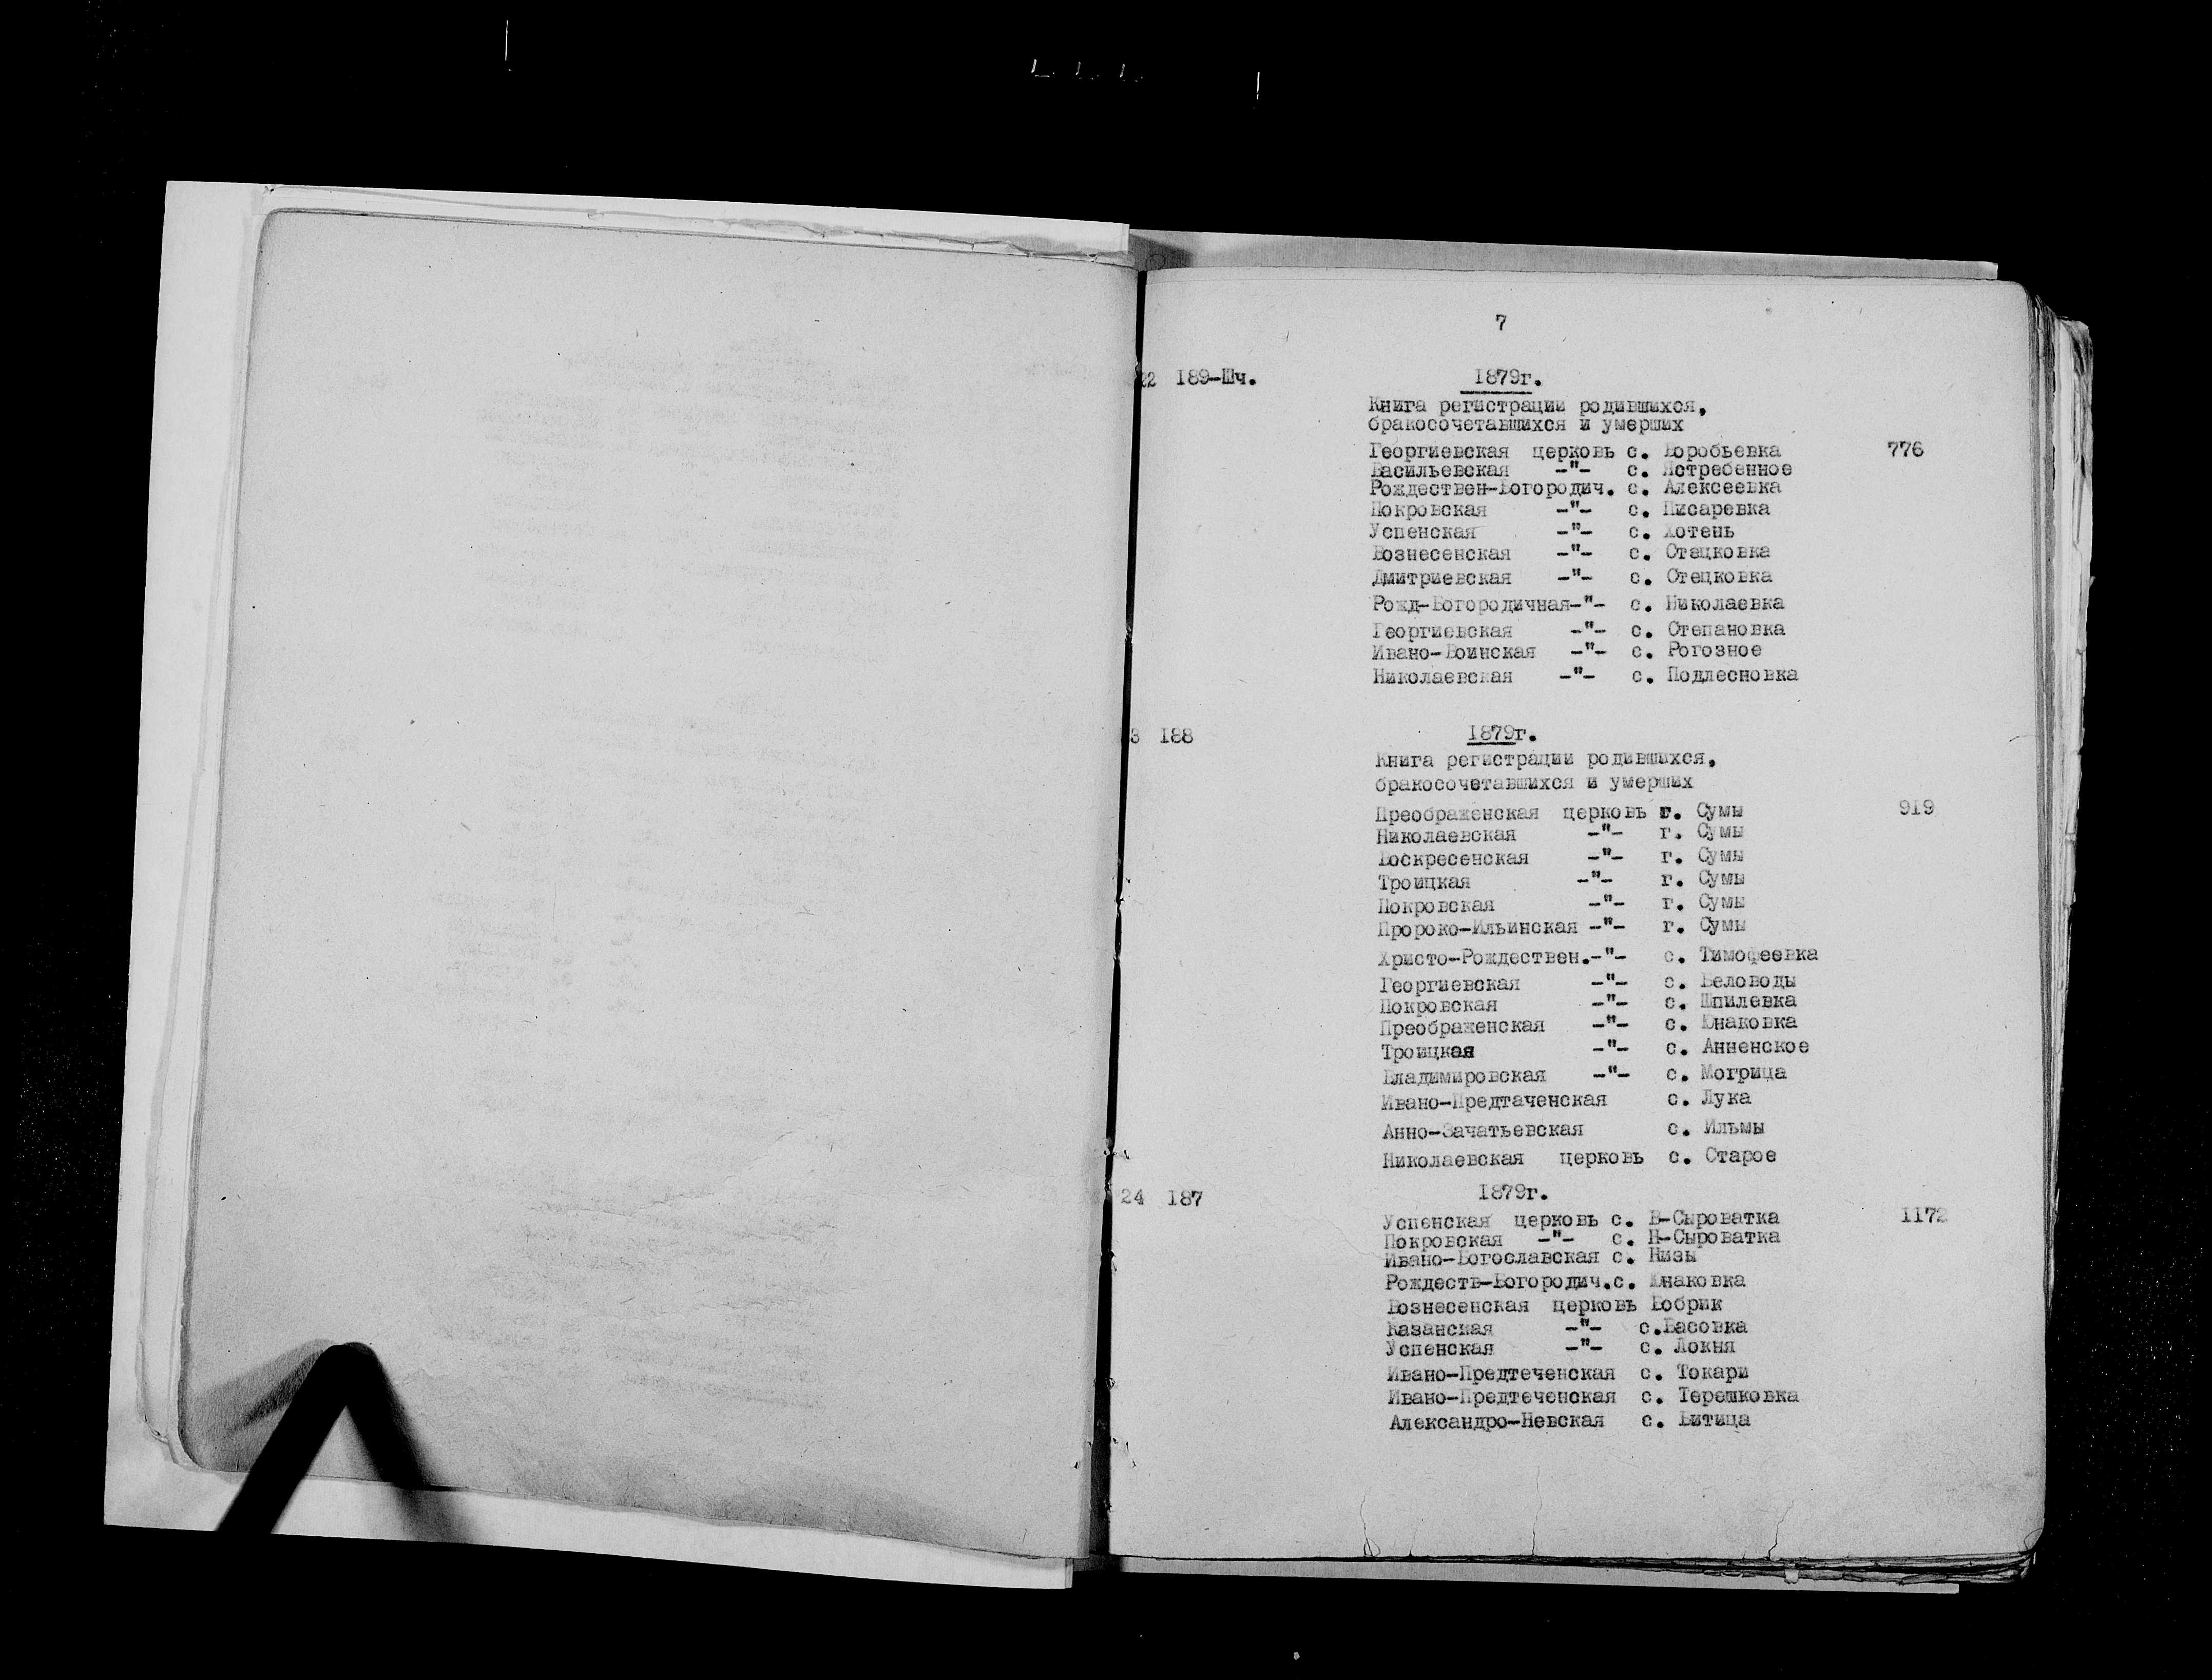 7
22 189-Шч. 1879г.
Книга регистрации родившихся,
бракосочетавшихся и умерших
Георгиевская церковь с. Воробьевка 776
Васильевская -"- с. Ястребенное
Рождествен-Богородич. с. Алексеевка
Покровская -"- с. Писаревка
Успенская -"- с. Хотень
Вознесенская -"- с. Стецковка
Дмитриевская -"- с. Стецковка
Рожд-Богородичная-"- с. Николаевка
Георгиевская -"- с. Степановка
Ивано-Воинская -"- с. Рогозное
Николаевская -"- с. Подлесновка
3 188 1879г.
Книга регистрации родившихся,
бракосочетавшихся и умерших
Преображенская церковь г. Сумы 919
Николаевская -"- г. Сумы
Воскресенская -"- г. Сумы
Троицкая -"- г. Сумы
Покровская -"- г. Сумы
Пророко-Ильинская -"- г. Сумы
Христо-Рождествен.-"- с. Тимофеевка
Георгиевская -"- с. Беловоды
Покровская -"- с. Шпилевка
Преображенская -"- с. Юнаковка
Троицкая -"- с. Анненское
Владимировская -"- с. Могрица
Ивано-Предтаченская с. Лука
Анно-Зачатьевская с. Ильмы
Николаевская церковь с. Старое
24 187 1879г.
Успенская церковь с. В-Сыроватка 1172
Покровская -"- с. Н-Сыроватка
Ивано-Богославская с. Низы
Рождеств-Богородич.с. Юнаковка
Вознесенская церковь Бобрик
Казанская -"- с.Басовка
Успенская -"- с. Локня
Ивано-Предтеченская с. Токари
Ивано-Предтеченская с. Терешковка
Александро-Невская с. Битица